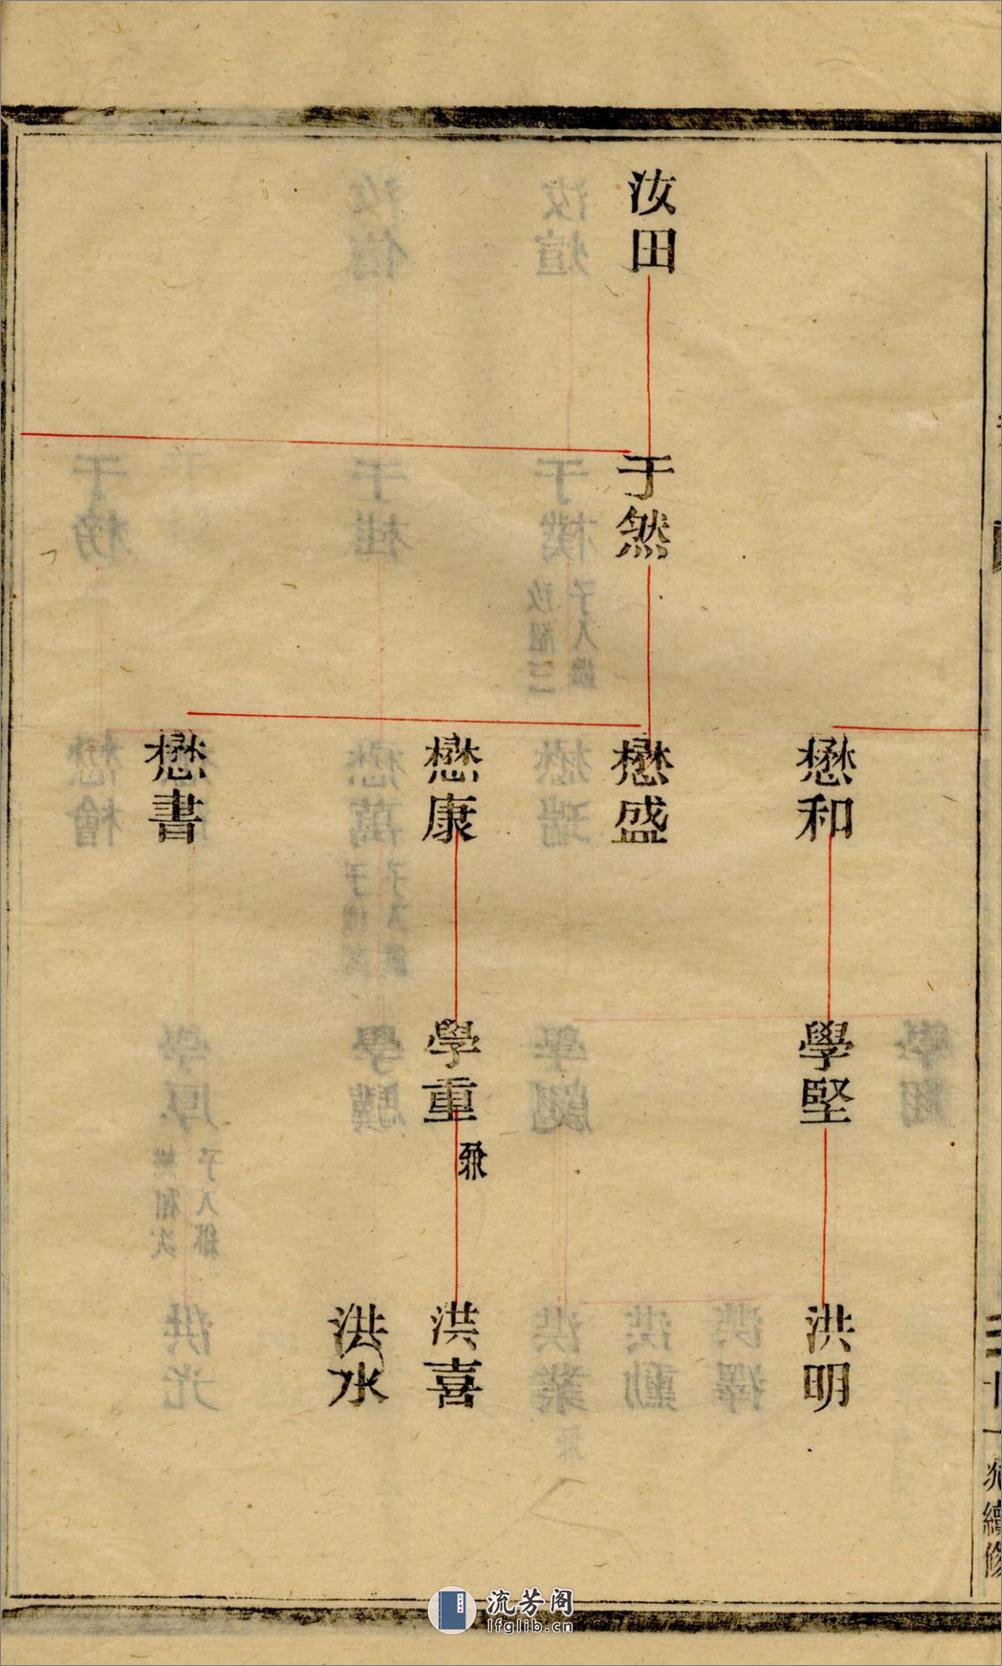 汝田
于然
懋和
懋盛
懋康
懋書
學堅
學重
洪明
洪喜
洪水
流芳阁
lfglib.cn